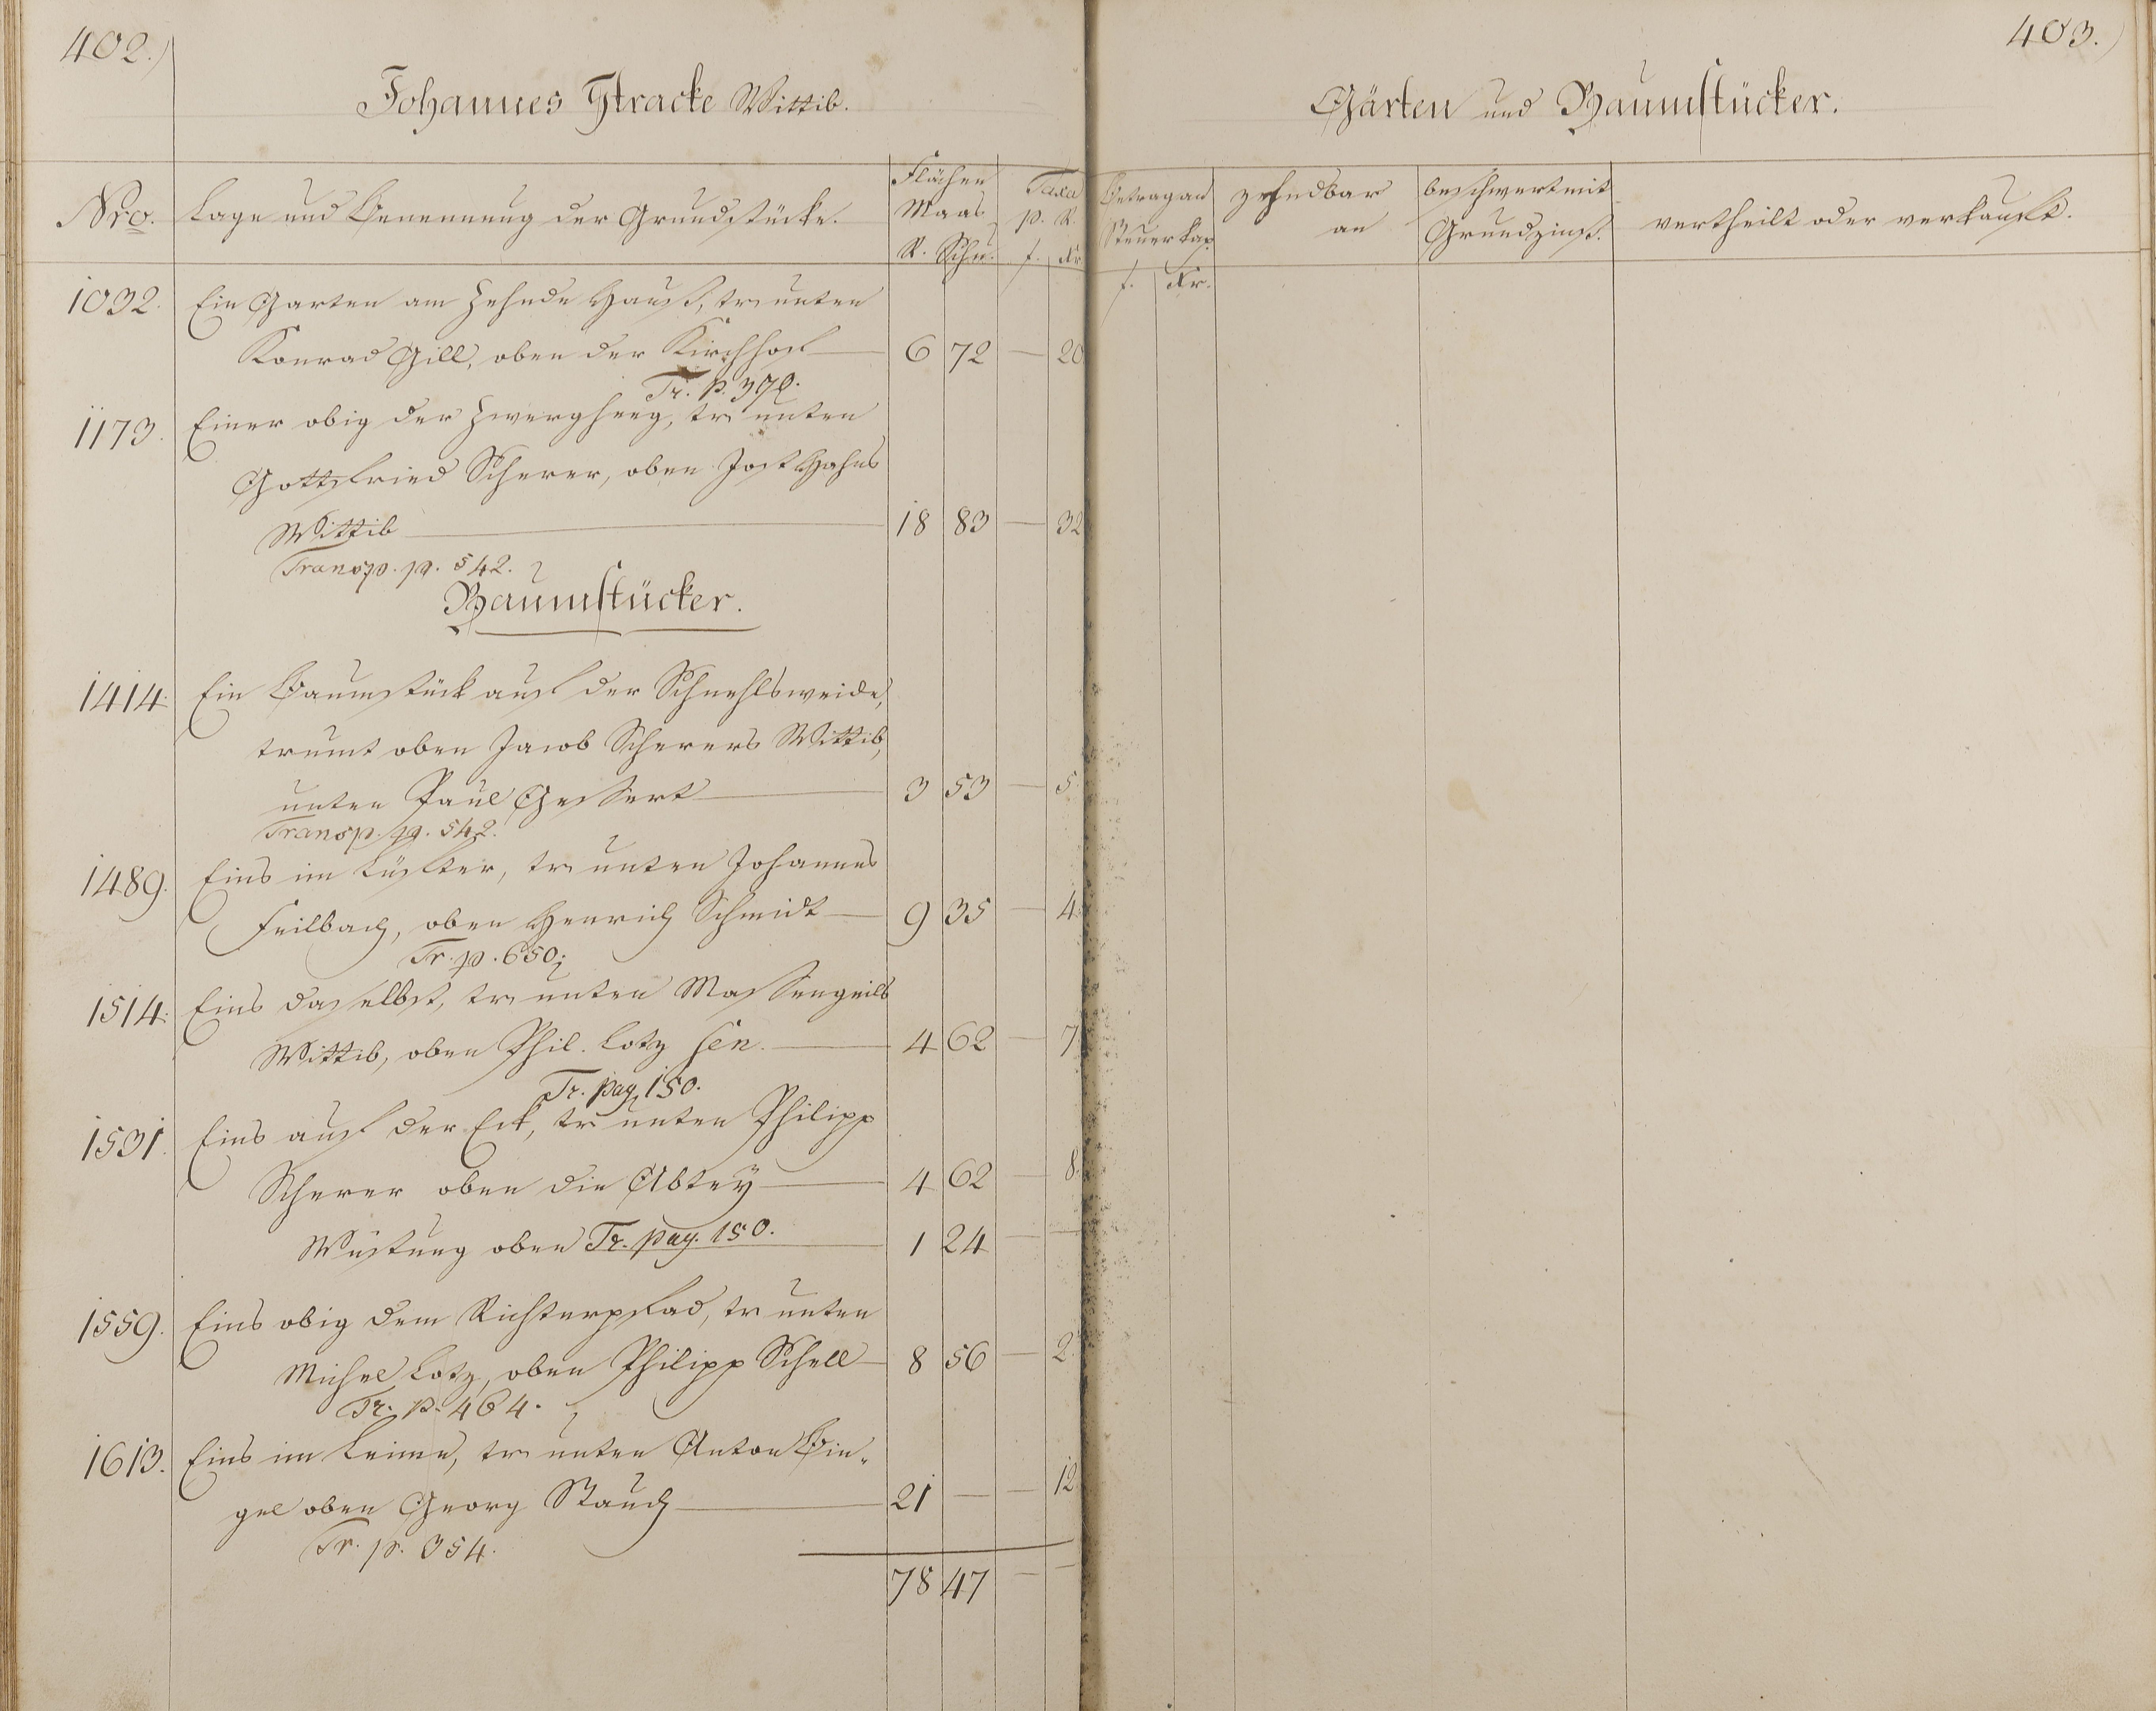 402.)
Johannes Stracke Wittib.
Nro.
Lage und Benennung der Grundstücke.
Flächen
Maas
R. Schu.
Taxa
p. R.
f. Kr.
1032. Ein Garten am Zehnde Hauß, tr unten
Konrad Gill, oben der Kirchhof — 6 72 — 20
Tr. p. 370.
1173. Einer obig der Zwergheeg, tr unten
Gottfried Scherer, oben Jost Hahns
Wittib — 18 83 — 32
Transp. pg. 542.
Baumstücker.
1414. Ein Baumstück auf der Schnehlsweide,
trumt oben Jacob Scherers Wittib,
unten Paul Gessert — 3 53 — 5.
Transp. pg. 542.
1489. Eins im Lüfter, tr unten Johannes
Feilbach, oben Henrich Schmidt — 9 35 — 4.
Tr. p. 650;
1514. Eins daselbst, tr unten Massengeils
Wittib, oben Phil. Lotz sen. — 4 62 — 7.
Tr. pag. 150.
1531. Eins auf der Eck, tr unten Philipp
Scherer oben die Abtey — 4 62 — 8.
Wüstung oben Tr. pag. 150. 1 24 — —
1559. Eins obig dem Richterpfad, tr unten
Michel Lotz, oben Philipp Schell — 8 56 — 2.
Tr. p. 464.
1613. Eins im Leime, tr unten Anton Bin-
gel oben Georg Stauch — 21 — — 12.
Tr. p. 354.
78 47 — —
403.)
Gärten und Baumstücker.
Betrag an
Steuer Kap.
f. Kr.
zehndbar
an
beschwert mit
Grundzinß.
vertheilt oder verkauft.